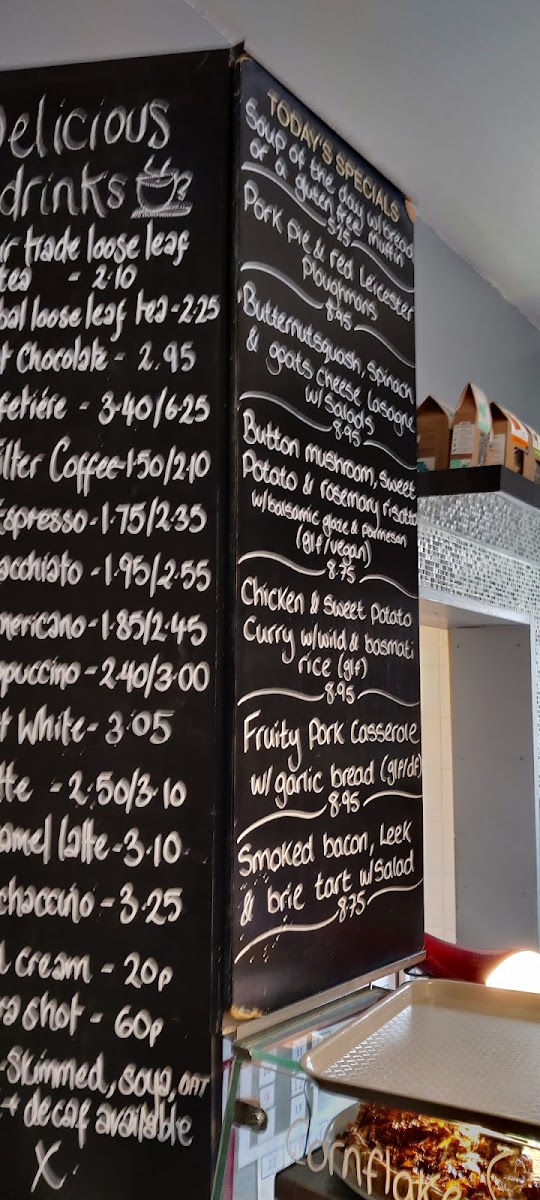 Delicious
drinks
ir trade loose leaf
tea - 2.10
bal loose leaf tea - 2.25
t Chocolate - 2.95
fetiére - 3.40/6.25
ilter Coffee - 1.50/2.10
Espresso - 1.75/2.35
acchiato - 1.95/2.55
mericano - 1.85/2.45
ppuccino - 2.40/3.00
t White - 3.05
tte - 2.50/3.10
amel latte - 3.10
chaccino - 3.25
d cream - 20p
ra shot - 60p
- skimmed, soya, OAT
+ decaf available
X
TODAY'S SPECIALS
Soup of the day w/bread
or a gluten free muffin
5.25
Pork pie & red Leicester
Ploughmans
8.95
Butternutsquash, spinach
& goats cheese lasagne
w/salads
8.95
Button mushroom, sweet
Potato & rosemary risotto
w/balsamic glaze & parmesan
(glf/vegan)
8.75
Chicken & Sweet Potato
Curry w/wild & basmati
rice (glf)
8.95
Fruity Pork Casserole
w/garlic bread (glf/df)
8.95
Smoked bacon, Leek
& brie tart w/Salad
8.75
Cornflak